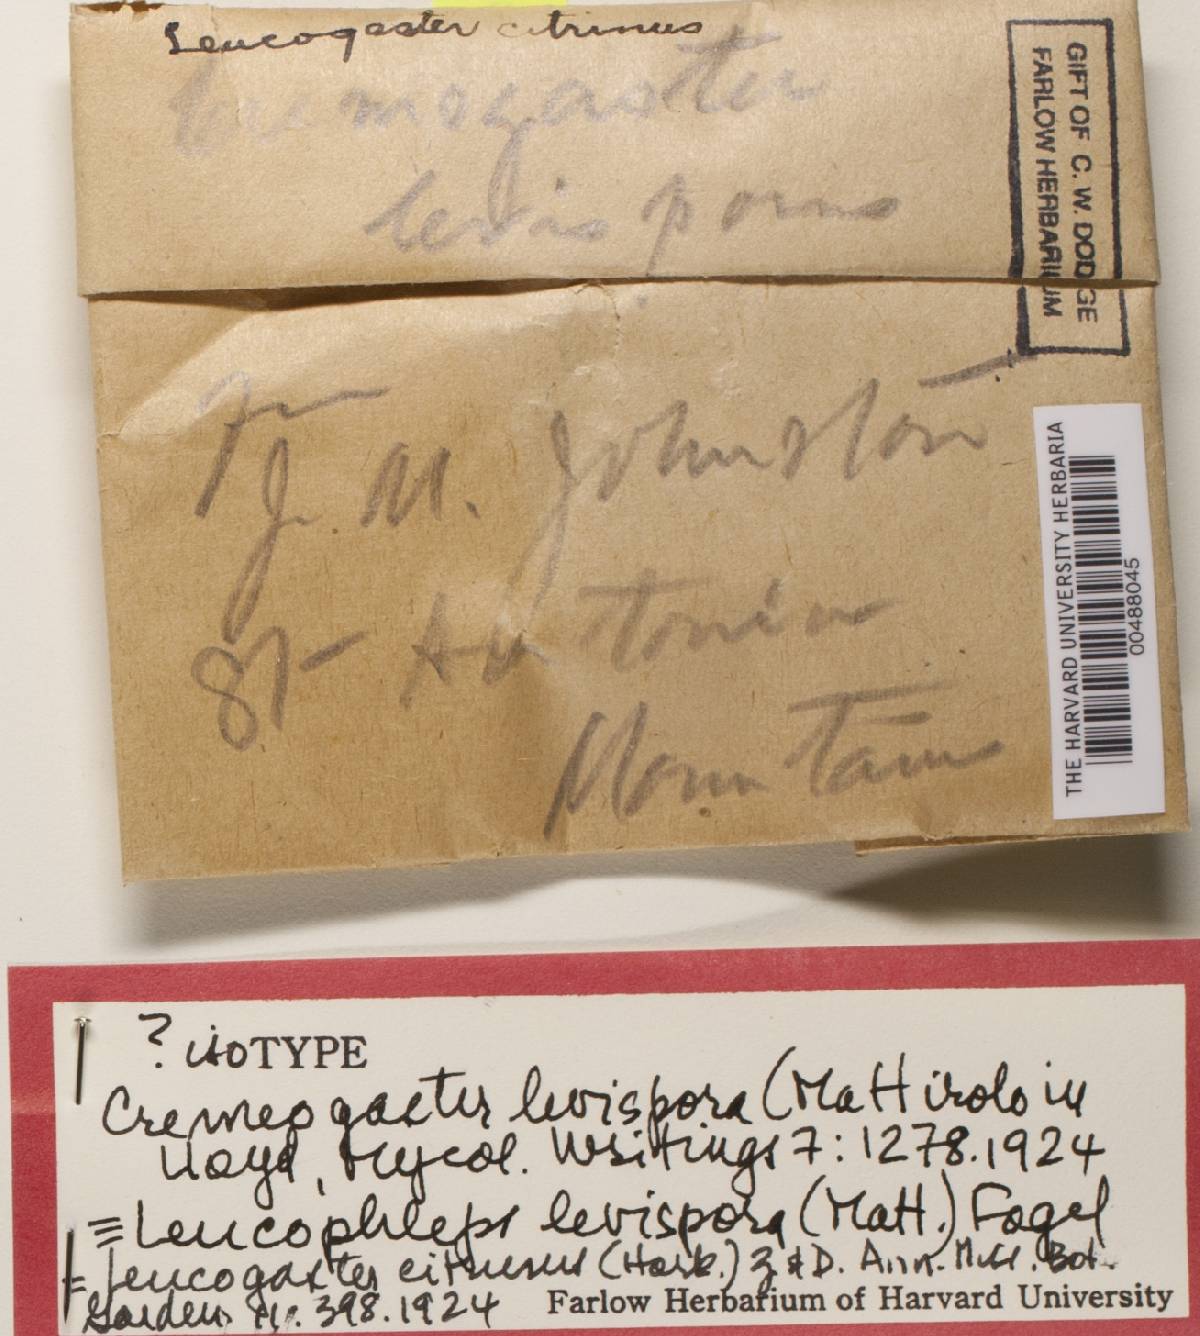 Leucogaster citrinus
Cremogaster
levisporus
GIFT OF C. W. DODGE
FARLOW HERBARIUM
J. M. Johnston
St Antonin
Mountain
THE HARVARD UNIVERSITY HERBARIA
00488045
? isoTYPE
Cremeogaster levispora (Mattirolo in
Lloyd, Mycol. Writings 7: 1278. 1924
≡ Leucophleps levispora (Matt.) Fogel
= Leucogaster citrinus (Hark.) Z & D. Ann. Miss. Bot.
Garden 11: 398. 1924
Farlow Herbarium of Harvard University